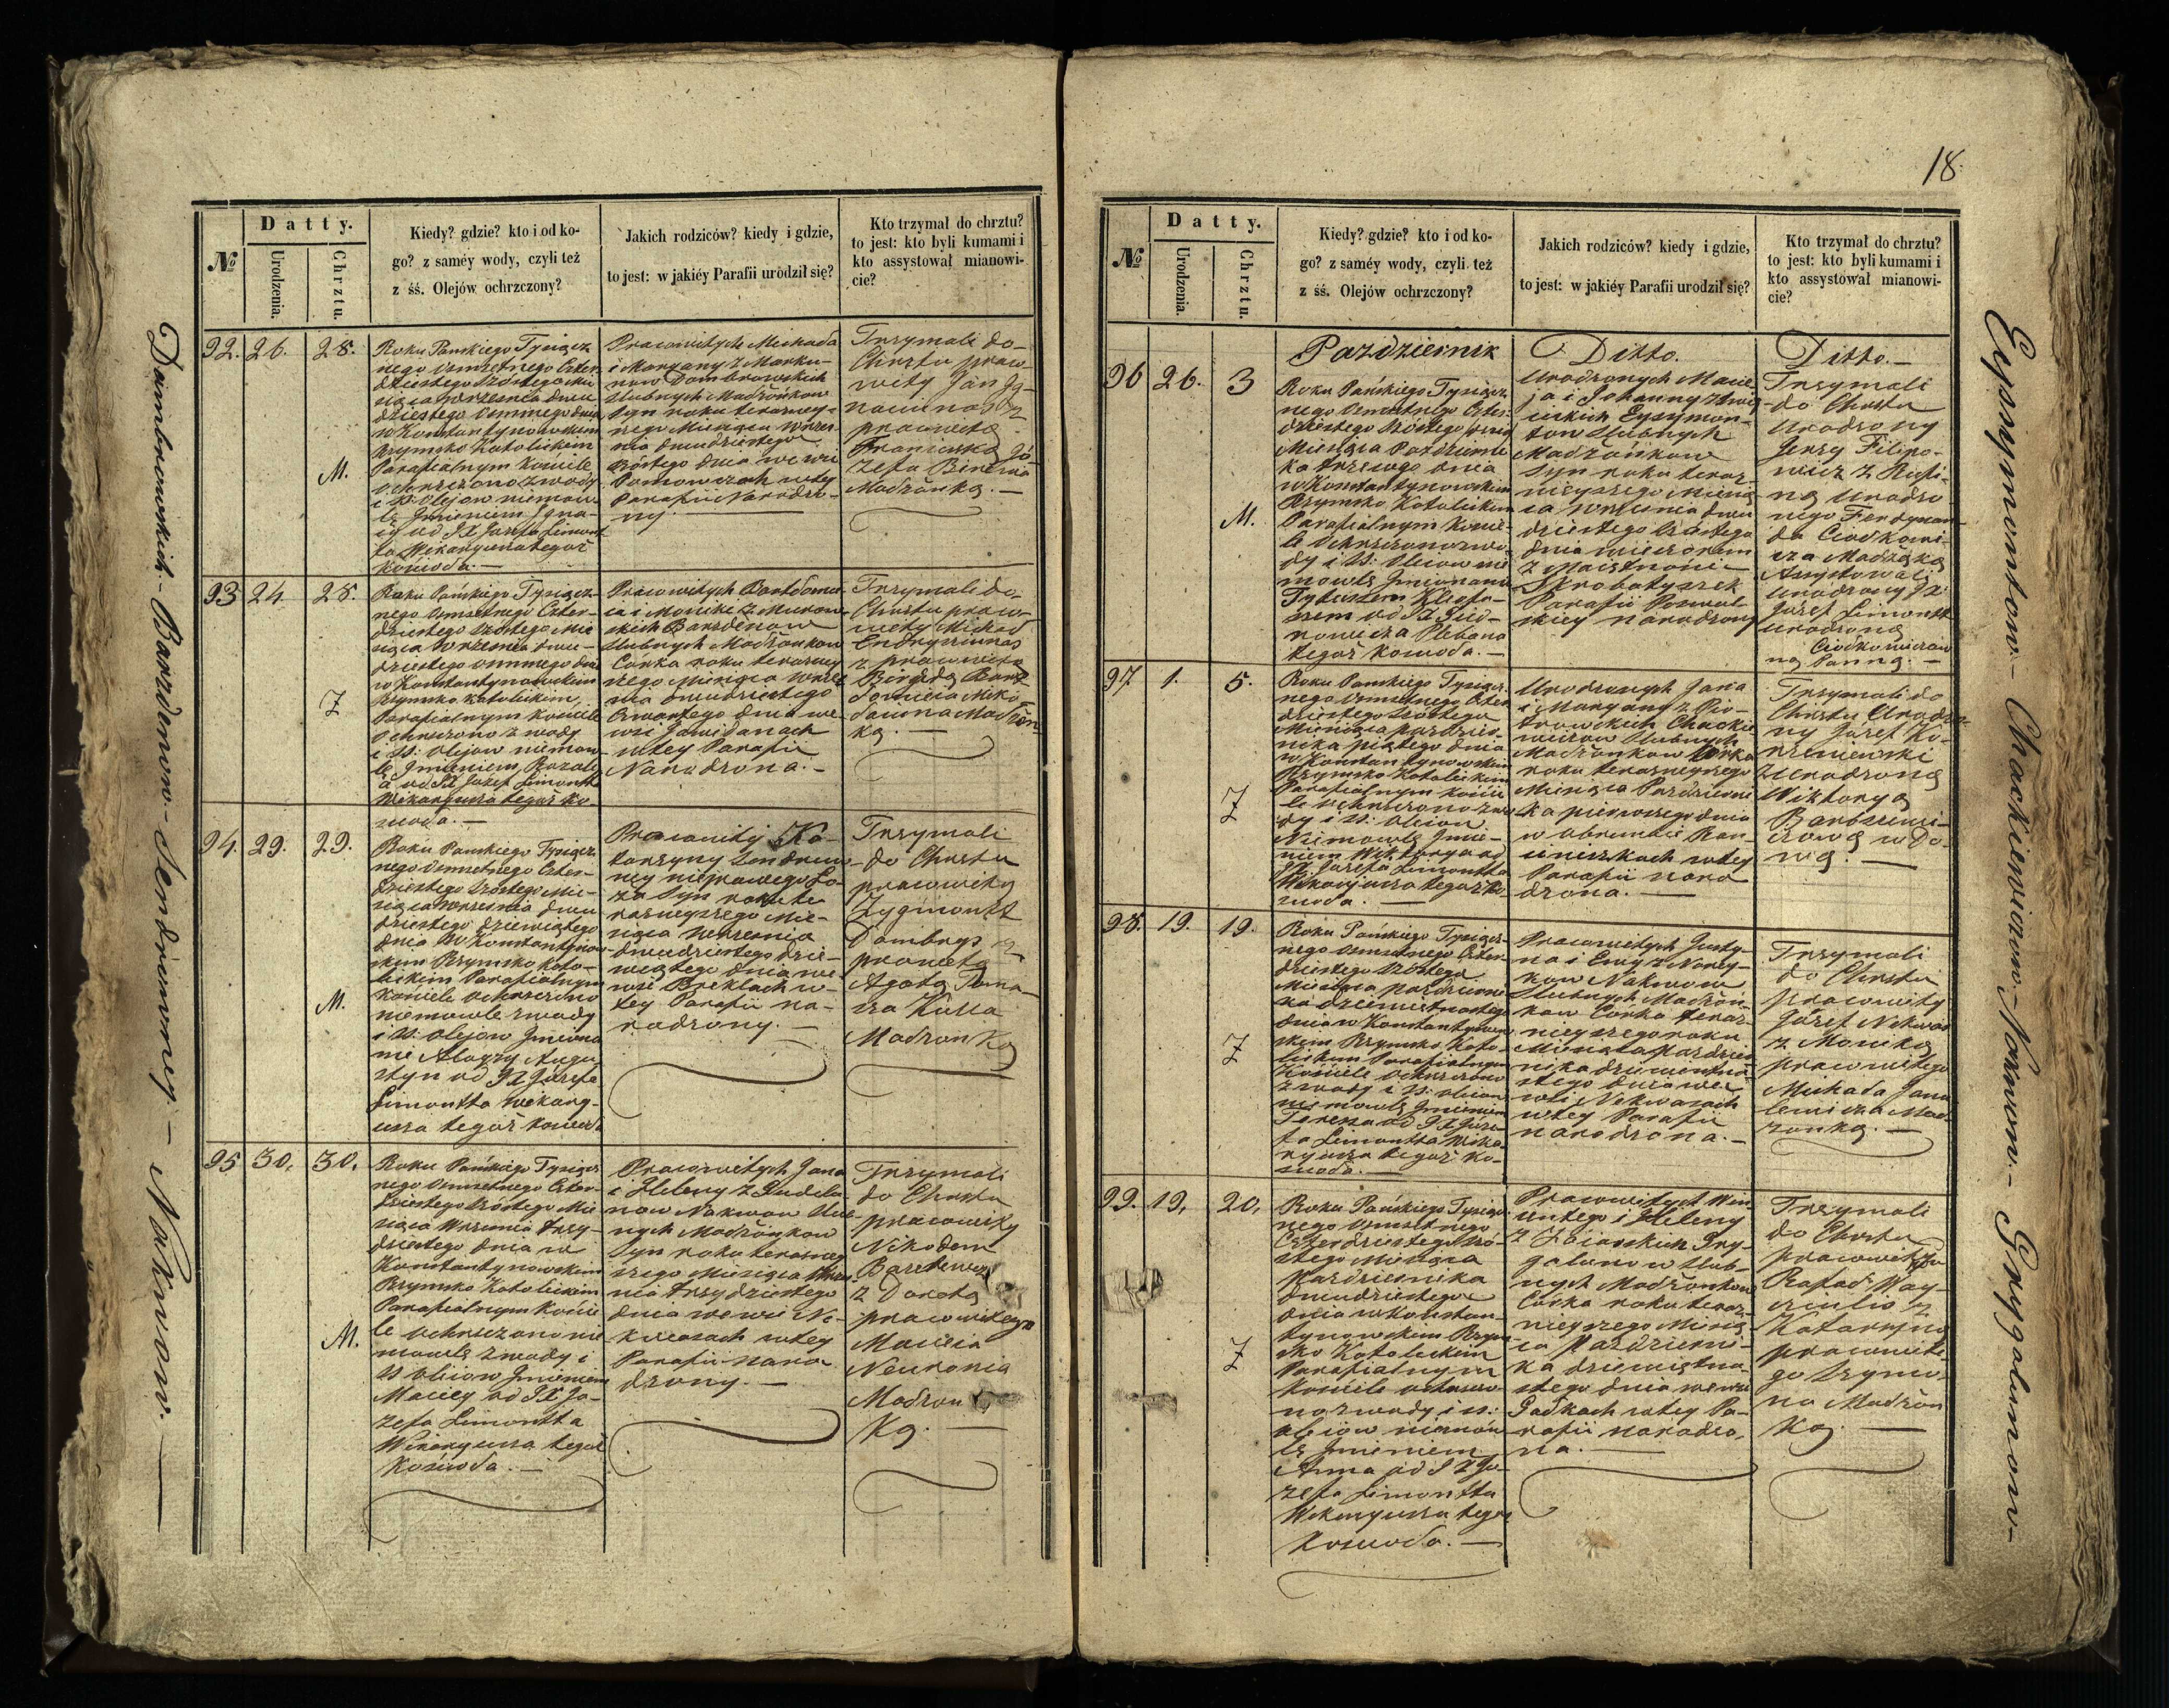 18.
Dąmbrowskich - Barzdenow - Sendruwney - i Nakwow.
№
Datty.
Urodzenia.
Chrztu.
Kiedy? gdzie? kto i od ko-
go? z saméy wody, czyli też
z śś. Olejów ochrzczony?
Jakich rodziców? kiedy i gdzie,
to jest: w jakiéy Parafii urodził się?
Kto trzymał do chrztu?
to jest: kto byli kumami i
kto assystował mianowi-
cie?
92. 26. 28.
M.
Roku Panskiego Tysiącz
nego Osmsetnego Czter-
dziestego Szóstego Mie
siąca Wrzesnia dwu
dziestego Osmnego dnia
w Konstantynowskim
Rzymsko Katolickim
Parafialnym Kosciele
Ochrzczono z wody
i ss: Olejow niemow
lę Jmieniem Igna-
cy od JX Jozefa Limont
ta Wikaryusza tegoż
Kościoła. —
Pracowitych Michała
i Maryany z Marku-
now Dombrowskich
Slubnych Małżonkow
Syn roku terazniey-
szego Miesiąca Wrzes-
nia dwudziestego
Szóstego dnia we wsi
w tey
Parafii Narodzo-
ny.
Trzymali do
Chrztu praco-
wity Jan Ig-
z
pracowitą
Franciszką Jó-
zefa
Małżonką. —
93 24. 28.
Ż
Roku Pańskiego Tysiącz-
nego Osmsetnego Czter-
dziestego Szóstego Mie
siąca Wrzesnia dwu-
dziestego Osmnego dnia
w Konstantynowskim
Rzymsko Katolickim,
Parafialnym Kosciele
Ochrzczono z wody
i ss: Olejow niemow
lę Jmieniem Rozali
a od JX Jozef Limontt
Wikaryusza tegoż Ko
scioła. —
Pracowitych Bartłomie
ia i Moniki z
Barzdenow
Slubnych Małżonkow
Córka roku teraźniey
szego Miesiąca Wrześ
nia dwudziestego
Czwartego dnia we
wsi Jawidanach
w tey Parafii
Narodzona. —
Trzymali do
Chrztu praco-
wity Michał
z pracowitą
Birutą Bart-
łomieia
Małżon
ką. —
94. 29. 29.
M.
Roku Panskiego Tysiącz
nego Osmsetnego Czter-
dziestego Szóstego Mie-
siąca Wrzesnia dwu
dziestego dziewiątego
dnia W Konstantynow-
skim Rzymsko Kato-
lickim Parafialnym
Kosciele ochrzczono
niemowle z wody
i ss: Olejow Jmiona
mi Aloyzy Augu
styn od JX Józefa
Limontta Wikary-
usza tegoż Koscioła
Pracowitéj Ka-
tarzyny Sendruw
ney nieprawego Ło-
ża Syn roku te
raznieyszego Mie-
siąca Wrzesnia
dwudziestego dzie-
wiątego dnia we
wsi Breklach w
tey Parafii na-
rodzony. —
Trzymali
do Chrztu
pracowity
Zygmontt
Dombrys z
pracowitą
Agatą Toma-
sza
Małżonką
95 30. 30.
M.
Roku Pańskiego Tysiącz
nego Osmsetnego Czter-
dziestego Szóstego Mie
siąca Wrzesnia trzy-
dziestego dnia w
Konstantynowskim
Rzymsko Katolickim
Parafialnym Koście
le ochrzczono nie
mowlę z wody i
ss oliiow Jmieniem
Maciey od JX Jó-
zefa Limontta
Wikaryusza tegoż
Kościoła. —
Pracowitych Jana
i Heleny z
now Nakwow Slub-
nych Małżonkow
Syn roku terazniey
szego Miesiąca Wrześ
nia trzydziestego
dnia we wsi Na-
kwasach w tey
Parafii naro
dzony. —
Trzymali
do Chrztu
pracowity
Nikodem
z Dorotą
pracowitego
Macieia
Małżon
Ką. —
Eysymontow - Chackiewiczow - Nakwow. - Grygolunow -
№
Datty.
Urodzenia.
Chrztu.
Kiedy? gdzie? kto i od ko-
go? z saméy wody, czyli też
z śś. Olejów ochrzczony?
Jakich rodziców? kiedy i gdzie,
to jest: w jakiéy Parafii urodził się?
Kto trzymał do chrztu?
to jest: kto byli kumami i
kto assystował mianowi-
cie?
Pazdziernik
Ditto.
Ditto. —
96 26. 3
M.
Roku Pańskiego Tysiącz
nego Osmsetnego Czter-
dziestego Szóstego
Miesiąca Pazdzierni
ka trzeciego dnia
w Konstantynowskim
Rzymsko Katolickim
Parafialnym Koscie-
le Ochrzczono z wo-
dy i ss: Oleiow nie
mowlę Jmionami
Tytusem Kleofa-
sem od JX
Plebana
tegoż Koscioła. —
Urodzonych Macie
ja i Johanny z
Eysymon-
tow Slubnych
Małżonkow
Syn roku teraz-
nieyszego Miesią
ca Wrzesnia dwu
dziestego Szóstego
dnia wieczorem
z Maiętnosci
Skrobatyszek
Parafii Poswol-
skiey narodzony
Trzymali
do Chrztu
Urodzony
Jerzy Filipo-
wicz z Rufi-
ną Urodzo
nego Ferdynan-
da
Małżąką
Assystowali
Urodzony JX:
Józef Limontt
Urodzoną
Panną. —
97. 1. 5.
Ż
Roku Panskiego Tysiącz
nego Osmsetnego Czter
dziestego Szóstego
Miesiąca pazdzier-
nika piątego dnia
w Konstantynowskim
Rzymsko Katolickim
Parafialnym Koście
le Ochrzczono z wo
dy i ss: Oleiow
Niemowlę Jmie-
niem Wiktorya od
JX Józefa Limontta
Wikaryusza tegoż Ko-
scioła. —
Urodzonych Jana
i Maryany z Pio-
trowskich Chackie
wiczow Slubnych
Małżonkow Córka
roku teraznieyszego
Miesiąca Pazdzierni
ka pierwszego dnia
w
w tey
Parafii naro
dzona. —
Trzymali do
Chrztu Urodzo-
ny Józef Ko-
rzeniewski
z Urodzoną
Wiktoryą
Bartoszewi-
czową wdo-
wą. —
98. 19. 19.
Ż
Roku Pańskiego Tysiącz-
nego Osmsetnego Czter-
dziestego Szóstego
Miesiąca pazdzierni
ka dziewietnastego
dnia w Konstantynow
skim Rzymsko Kato-
lickim Parafialnym
Kościele Ochrzczono
z wody i ss: Oleiow
niemowlę Jmieniem
Teressa od JX Józe-
fa Limontta Wika
ryusza tegoż Ko-
scioła. —
Pracowitych Justy-
na i Ewy z
Nakwow
Slubnych Małżon
kow Córka teraz-
nieyszego roku
Miesiąca pazdzier
nika dziewietna-
stego dnia we
wsi Nakwasach
w tey Parafii
narodzona. —
Trzymali
do Chrztu
pracowity
Józef Nakwas
z Moniką
pracowitego
Michała Jana
lewicza Mał-
zonką. —
99. 19. 20.
Ż
Roku Pańskiego Tysiącz
nego Osmsetnego
Czterdziestego Szó-
stego Miesiąca
Pazdziernika
dwudziestego
dnia w Konstan-
tynowskim Rzym-
sko Katolickim
Parafialnym
Kosciele ochrzczo-
no z wody i ss:
oleiow niemow
lę Jmieniem
Anna od JX Jó-
zefa Limontta
Wikaryusza tegoż
Koscioła. —
Pracowitych Win-
centego i Heleny
z Gry-
golunow Slub-
nych Małżonkow
Córka roku teraz-
nieyszego Miesią-
ca Pazdzierni-
ka dziewiętna-
stego dnia we wsi
w tey Pa-
rafii narodzo-
na. —
Trzymali
do Chrztu
pracowity
Rafał
z
Katarzyną
pracowite-
go Szymo-
na Małżon
Ką. —